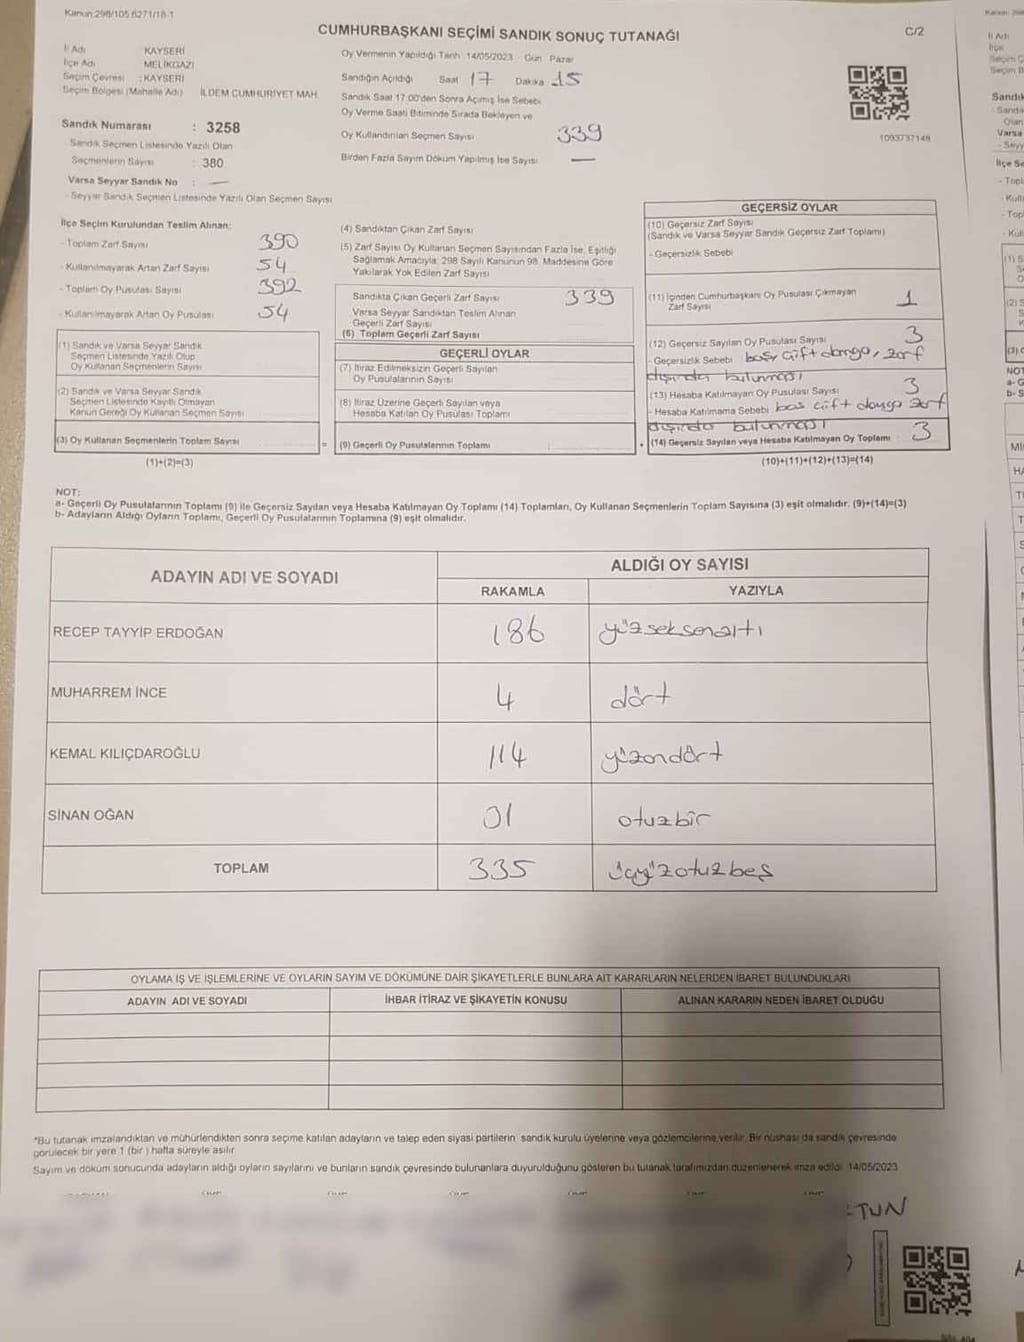 Kanun:298/105,6271/18-1
CUMHURBAŞKANI SEÇİMİ SANDIK SONUÇ TUTANAĞI
C/2
İl Adı KAYSERİ
İlçe Adı MELİKGAZİ
Seçim Çevresi : KAYSERİ
Seçim Bölgesi (Mahalle Adı) İLDEM CUMHURİYET MAH.
Oy Vermenin Yapıldığı Tarih 14/05/2023 Gün Pazar
Sandığın Açıldığı Saat 17 Dakika 15
Sandık Saat 17:00'den Sonra Açımış İse Sebebi
Oy Verme Saati Bitiminde Sırada Bekleyen ve
Oy Kullandırılan Seçmen Sayısı 339
Birden Fazla Sayım Döküm Yapılmış İse Sayısı —
1093737148
Sandık Numarası : 3258
- Sandık Seçmen Listesinde Yazılı Olan
Seçmenlerin Sayısı : 380
Varsa Seyyar Sandık No : —
- Seyyar Sandık Seçmen Listesinde Yazılı Olan Seçmen Sayısı
İlçe Seçim Kurulundan Teslim Alınan:
- Toplam Zarf Sayısı 390
- Kullanılmayarak Artan Zarf Sayısı 54
- Toplam Oy Pusulası Sayısı 392
- Kullanılmayarak Artan Oy Pusulası 54
(1) Sandık ve Varsa Seyyar Sandık
Seçmen Listesinde Yazılı Olup
Oy Kullanan Seçmenlerin Sayısı
(2) Sandık ve Varsa Seyyar Sandık
Seçmen Listesinde Kayıtlı Olmayan
Kanun Gereği Oy Kullanan Seçmen Sayısı
(3) Oy Kullanan Seçmenlerin Toplam Sayısı
(1)+(2)=(3)
=
(4) Sandıktan Çıkan Zarf Sayısı
(5) Zarf Sayısı Oy Kullanan Seçmen Sayısından Fazla İse, Eşitliği
Sağlamak Amacıyla, 298 Sayılı Kanunun 98. Maddesine Göre
Yakılarak Yok Edilen Zarf Sayısı
Sandıkta Çıkan Geçerli Zarf Sayısı 339
Varsa Seyyar Sandıktan Teslim Alınan
Geçerli Zarf Sayısı
(6) Toplam Geçerli Zarf Sayısı
GEÇERLİ OYLAR
(7) İtiraz Edilmeksizin Geçerli Sayılan
Oy Pusulalarının Sayısı
(8) İtiraz Üzerine Geçerli Sayılan veya
Hesaba Katılan Oy Pusulası Toplamı
(9) Geçerli Oy Pusulalarının Toplamı :
+
GEÇERSİZ OYLAR
(10) Geçersiz Zarf Sayısı
(Sandık ve Varsa Seyyar Sandık Geçersiz Zarf Toplamı)
- Geçersizlik Sebebi
(11) İçinden Cumhurbaşkanı Oy Pusulası Çıkmayan
Zarf Sayısı 1
(12) Geçersiz Sayılan Oy Pusulası Sayısı 3
- Geçersizlik Sebebi boş, çift damga, zarf
dışında bulunması
(13) Hesaba Katılmayan Oy Pusulası Sayısı 3
- Hesaba Katılmama Sebebi boş çift damga zarf
dışında bulunması
(14) Geçersiz Sayılan veya Hesaba Katılmayan Oy Toplamı : 3
(10)+(11)+(12)+(13)=(14)
NOT:
a- Geçerli Oy Pusulalarının Toplamı (9) ile Geçersiz Sayılan veya Hesaba Katılmayan Oy Toplamı (14) Toplamları, Oy Kullanan Seçmenlerin Toplam Sayısına (3) eşit olmalıdır. (9)+(14)=(3)
b- Adayların Aldığı Oyların Toplamı, Geçerli Oy Pusulalarının Toplamına (9) eşit olmalıdır.
ADAYIN ADI VE SOYADI
ALDIĞI OY SAYISI
RAKAMLA YAZIYLA
RECEP TAYYİP ERDOĞAN 186 yüzseksenaltı
MUHARREM İNCE 4 dört
KEMAL KILIÇDAROĞLU 114 yüzondört
SİNAN OĞAN 31 otuzbir
TOPLAM 335 üçyüzotuzbeş
OYLAMA İŞ VE İŞLEMLERİNE VE OYLARIN SAYIM VE DÖKÜMÜNE DAİR ŞİKAYETLERLE BUNLARA AİT KARARLARIN NELERDEN İBARET BULUNDUKLARI
ADAYIN ADI VE SOYADI İHBAR İTİRAZ VE ŞİKAYETİN KONUSU ALINAN KARARIN NEDEN İBARET OLDUĞU
*Bu tutanak imzalandıktan ve mühürlendikten sonra seçime katılan adayların ve talep eden siyasi partilerin sandık kurulu üyelerine veya gözlemcilerine verilir. Bir nüshası da sandık çevresinde
görülecek bir yere 1 (bir) hafta süreyle asılır.
Sayım ve döküm sonucunda adayların aldığı oyların sayılarını ve bunların sandık çevresinde bulunanlara duyurulduğunu gösteren bu tutanak tarafımızdan düzenlenerek imza edildi. 14/05/2023
TUN